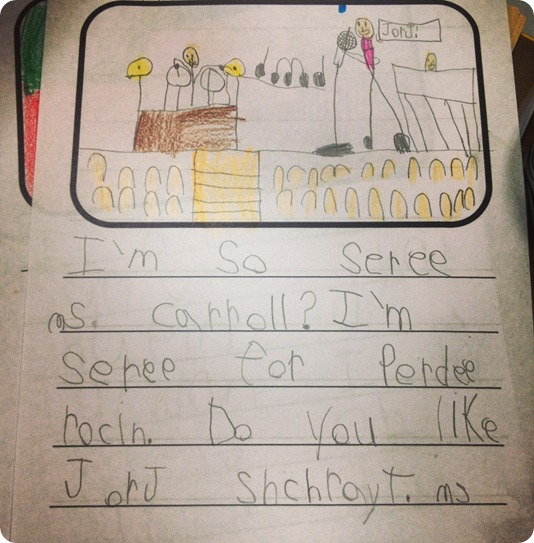 JorJ:
I'm so seree
ms. carroll? I'm
seree for Perdee
rocin. Do you like
JorJ Shchrayt. ms